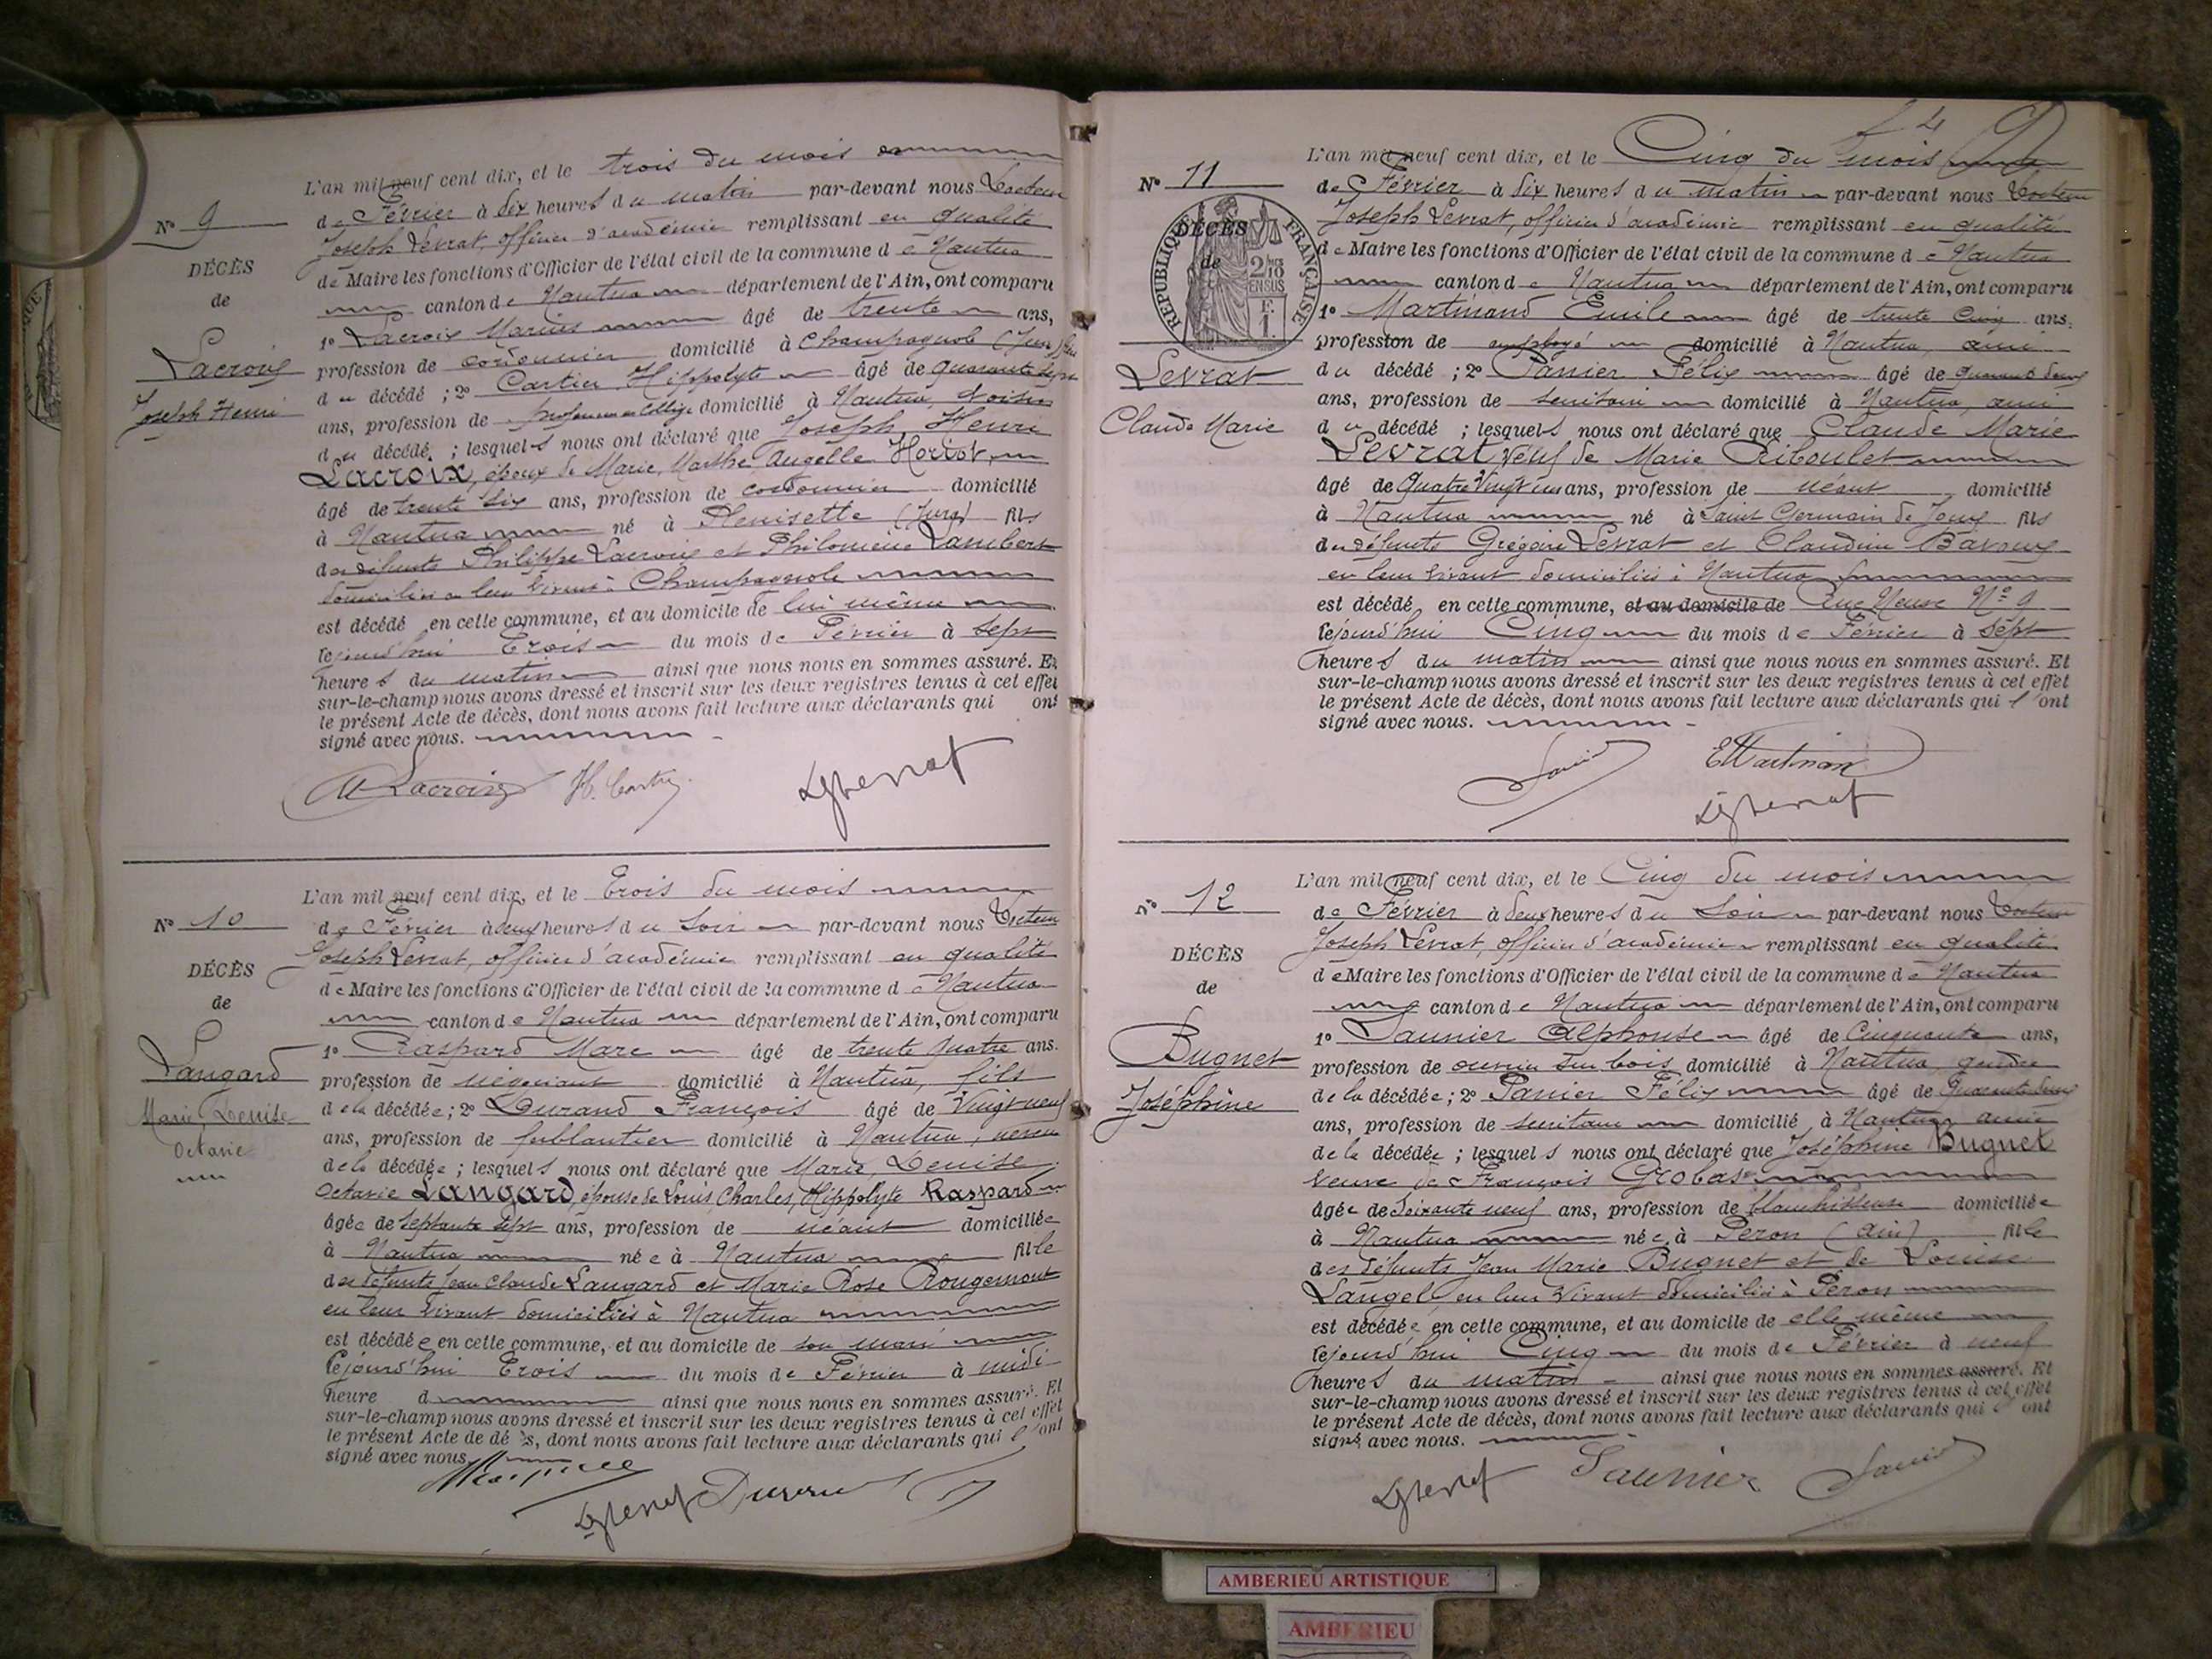 L'an mil neuf cent dix, et le trois du mois
N° 9
de Février à dix heures du matin par-devant nous Docteur
Joseph Levrat, officier d'académie remplissant en qualité
DÉCÈS
de Maire les fonctions d'Officier de l'état civil de la commune de Nantua
de
canton de Nantua département de l'Ain, ont comparu
1° Lacroix Marius âgé de trente ans,
Lacroix
profession de cordonnier domicilié à Champagnole (Jura)
du décédé ; 2° Cartier Hippolyte âgé de quarante sept
Joseph Henri
ans, profession de professeur au Collège domicilié à Nantua, voisin
du décédé ; lesquels nous ont déclaré que Joseph, Henri
Lacroix, époux de Marie, Marthe Angelle Horiot
âgé de trente six ans, profession de cordonnier domicilié
à Nantua né à Plenisette (Jura) fils
des défunts Philippe Lacroix et Philomène Lambert
domiciliés en leur vivant à Champagnole
est décédé en cette commune, et au domicile de lui même
cejourd'hui Trois du mois de Février à sept
heures du matin ainsi que nous nous en sommes assuré. Et
sur-le-champ nous avons dressé et inscrit sur les deux registres tenus à cet effet
le présent Acte de décès, dont nous avons fait lecture aux déclarants qui ont
signé avec nous.
M Lacroix H. Cartier Levrat
L'an mil neuf cent dix, et le Trois du mois
N° 10
de Février à deux heures du soir par-devant nous Docteur
Joseph Levrat, officier d'académie remplissant en qualité
DÉCÈS
de Maire les fonctions d'Officier de l'état civil de la commune de Nantua
de
canton de Nantua département de l'Ain, ont comparu
1° Raspard Marc âgé de trente quatre ans.
Langard
profession de négociant domicilié à Nantua, fils
Marie, Denise
de la décédée ; 2° Durand François âgé de Vingt neuf
Octavie
ans, profession de ferblantier domicilié à Nantua, neveu
de la décédée ; lesquels nous ont déclaré que Marie, Denise
Octavie Langard, épouse de Louis, Charles, Hippolyte Raspard
âgée de Septante sept ans, profession de néant domiciliée
à Nantua née à Nantua fille
des défunts Jean Claude Langard et Marie Rose Rougemont
en leur vivant domiciliés à Nantua
est décédée en cette commune, et au domicile de son mari
cejourd'hui Trois du mois de Février à midi
heure d ainsi que nous nous en sommes assuré. Et
sur-le-champ nous avons dressé et inscrit sur les deux registres tenus à cet effet
le présent Acte de décès, dont nous avons fait lecture aux déclarants qui l'ont
signé avec nous
Levrat Durand
f 4
L'an mil neuf cent dix, et le Cinq du mois
N° 11
de Février à dix heures du matin par-devant nous Docteur
Joseph Levrat, officier d'académie remplissant en qualité
RÉPUBLIQUE FRANÇAISE
DÉCÈS
de Maire les fonctions d'Officier de l'état civil de la commune de Nantua
de
2/10 EN SUS
canton de Nantua département de l'Ain, ont comparu
1° Martinand Emile âgé de trente Cinq ans,
profession de employé domicilié à Nantua, ami
Levrat
du décédé ; 2° Panier Félix âgé de quarante deux
ans, profession de secrétaire domicilié à Nantua, ami
Claude Marie
du décédé ; lesquels nous ont déclaré que Claude Marie
Levrat veuf de Marie Riboulet
âgé de Quatre Vingt un ans, profession de néant domicilié
à Nantua né à Saint Germain de Joux fils
des défunts Grégoire Levrat et Claudine Baroux
en leur vivant domiciliés à Nantua
est décédé en cette commune, et au domicile de Rue Neuve N° 9
cejourd'hui Cinq du mois de Février à sept
heures du matin ainsi que nous nous en sommes assuré. Et
sur-le-champ nous avons dressé et inscrit sur les deux registres tenus à cet effet
le présent Acte de décès, dont nous avons fait lecture aux déclarants qui l'ont
signé avec nous.
Panier E Martinand
Levrat
L'an mil neuf cent dix, et le Cinq du mois
N° 12
de Février à deux heures du Soir par-devant nous Docteur
Joseph Levrat, officier d'académie remplissant en qualité
DÉCÈS
de Maire les fonctions d'Officier de l'état civil de la commune de Nantua
de
canton de Nantua département de l'Ain, ont comparu
1° Saunier Alphonse âgé de Cinquante ans,
Bugnet
profession de ouvrier sur bois domicilié à Nantua, gendre
Joséphine
de la décédée ; 2° Panier Félix âgé de Quarante deux
ans, profession de secrétaire domicilié à Nantua ami
de la décédée ; lesquels nous ont déclaré que Joséphine Bugnet
veuve de François Grobas
âgée de Soixante neuf ans, profession de blanchisseuse domiciliée
à Nantua née à Peron (Ain) fille
des défunts Jean Marie Bugnet et de Louise
Langel, en leur vivant domiciliés à Péron
est décédée en cette commune, et au domicile de elle même
cejourd'hui Cinq du mois de Février à neuf
heures du matin ainsi que nous nous en sommes assuré. Et
sur-le-champ nous avons dressé et inscrit sur les deux registres tenus à cet effet
le présent Acte de décès, dont nous avons fait lecture aux déclarants qui l'ont
signé avec nous.
Levrat Saunier Panier
AMBERIEU ARTISTIQUE
AMBERIEU